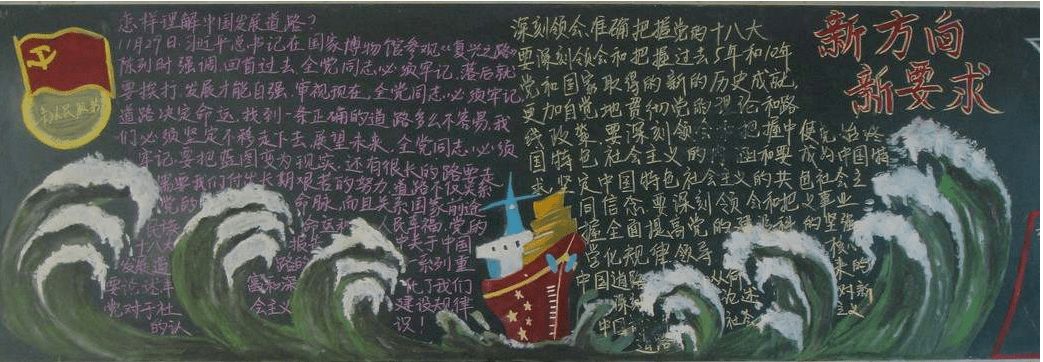 为人民服务
怎样理解中国发展道路?
11月29日,习近平总书记在国家博物馆参观《复兴之路》
陈列时强调,回首过去,全党同志必须牢记,落后就
要挨打,发展才能自强,审视现在,全党同志必须牢记,
道路决定命运,找到一条正确的道路多么不容易,我
们必须坚定不移走下去,展望未来,全党同志必须
牢记,要把蓝图变为现实,还有很长的路要走
需要我们付出长期艰苦的努力,道路不仅关系
党的 命脉,而且关系国家前途
命运和 人民幸福,党的
十八 报告 中关于中国
发展道 路的 一系列重
要论述丰 富和深 化了我们
党对于社 会主义 建设规律
的认 识!
新方向
新要求
深刻领会、准确把握党的十八大
要深刻领会和把握过去5年和10年
党和国家取得的新的历史成就,
更加自觉地贯彻党的理论和路
线政策,要深刻领会 把握中
国特色社会主义的 涵和要
求,坚定中国特色社会主义的共
同信念,要深刻领会和把
握全面提高党的建设科
学化 规律 领导
中国道路
深刻
中国
道路
成为中国特
色社会主
义事业
的坚强
核心
来的
对新
主义
从何
论述
社会